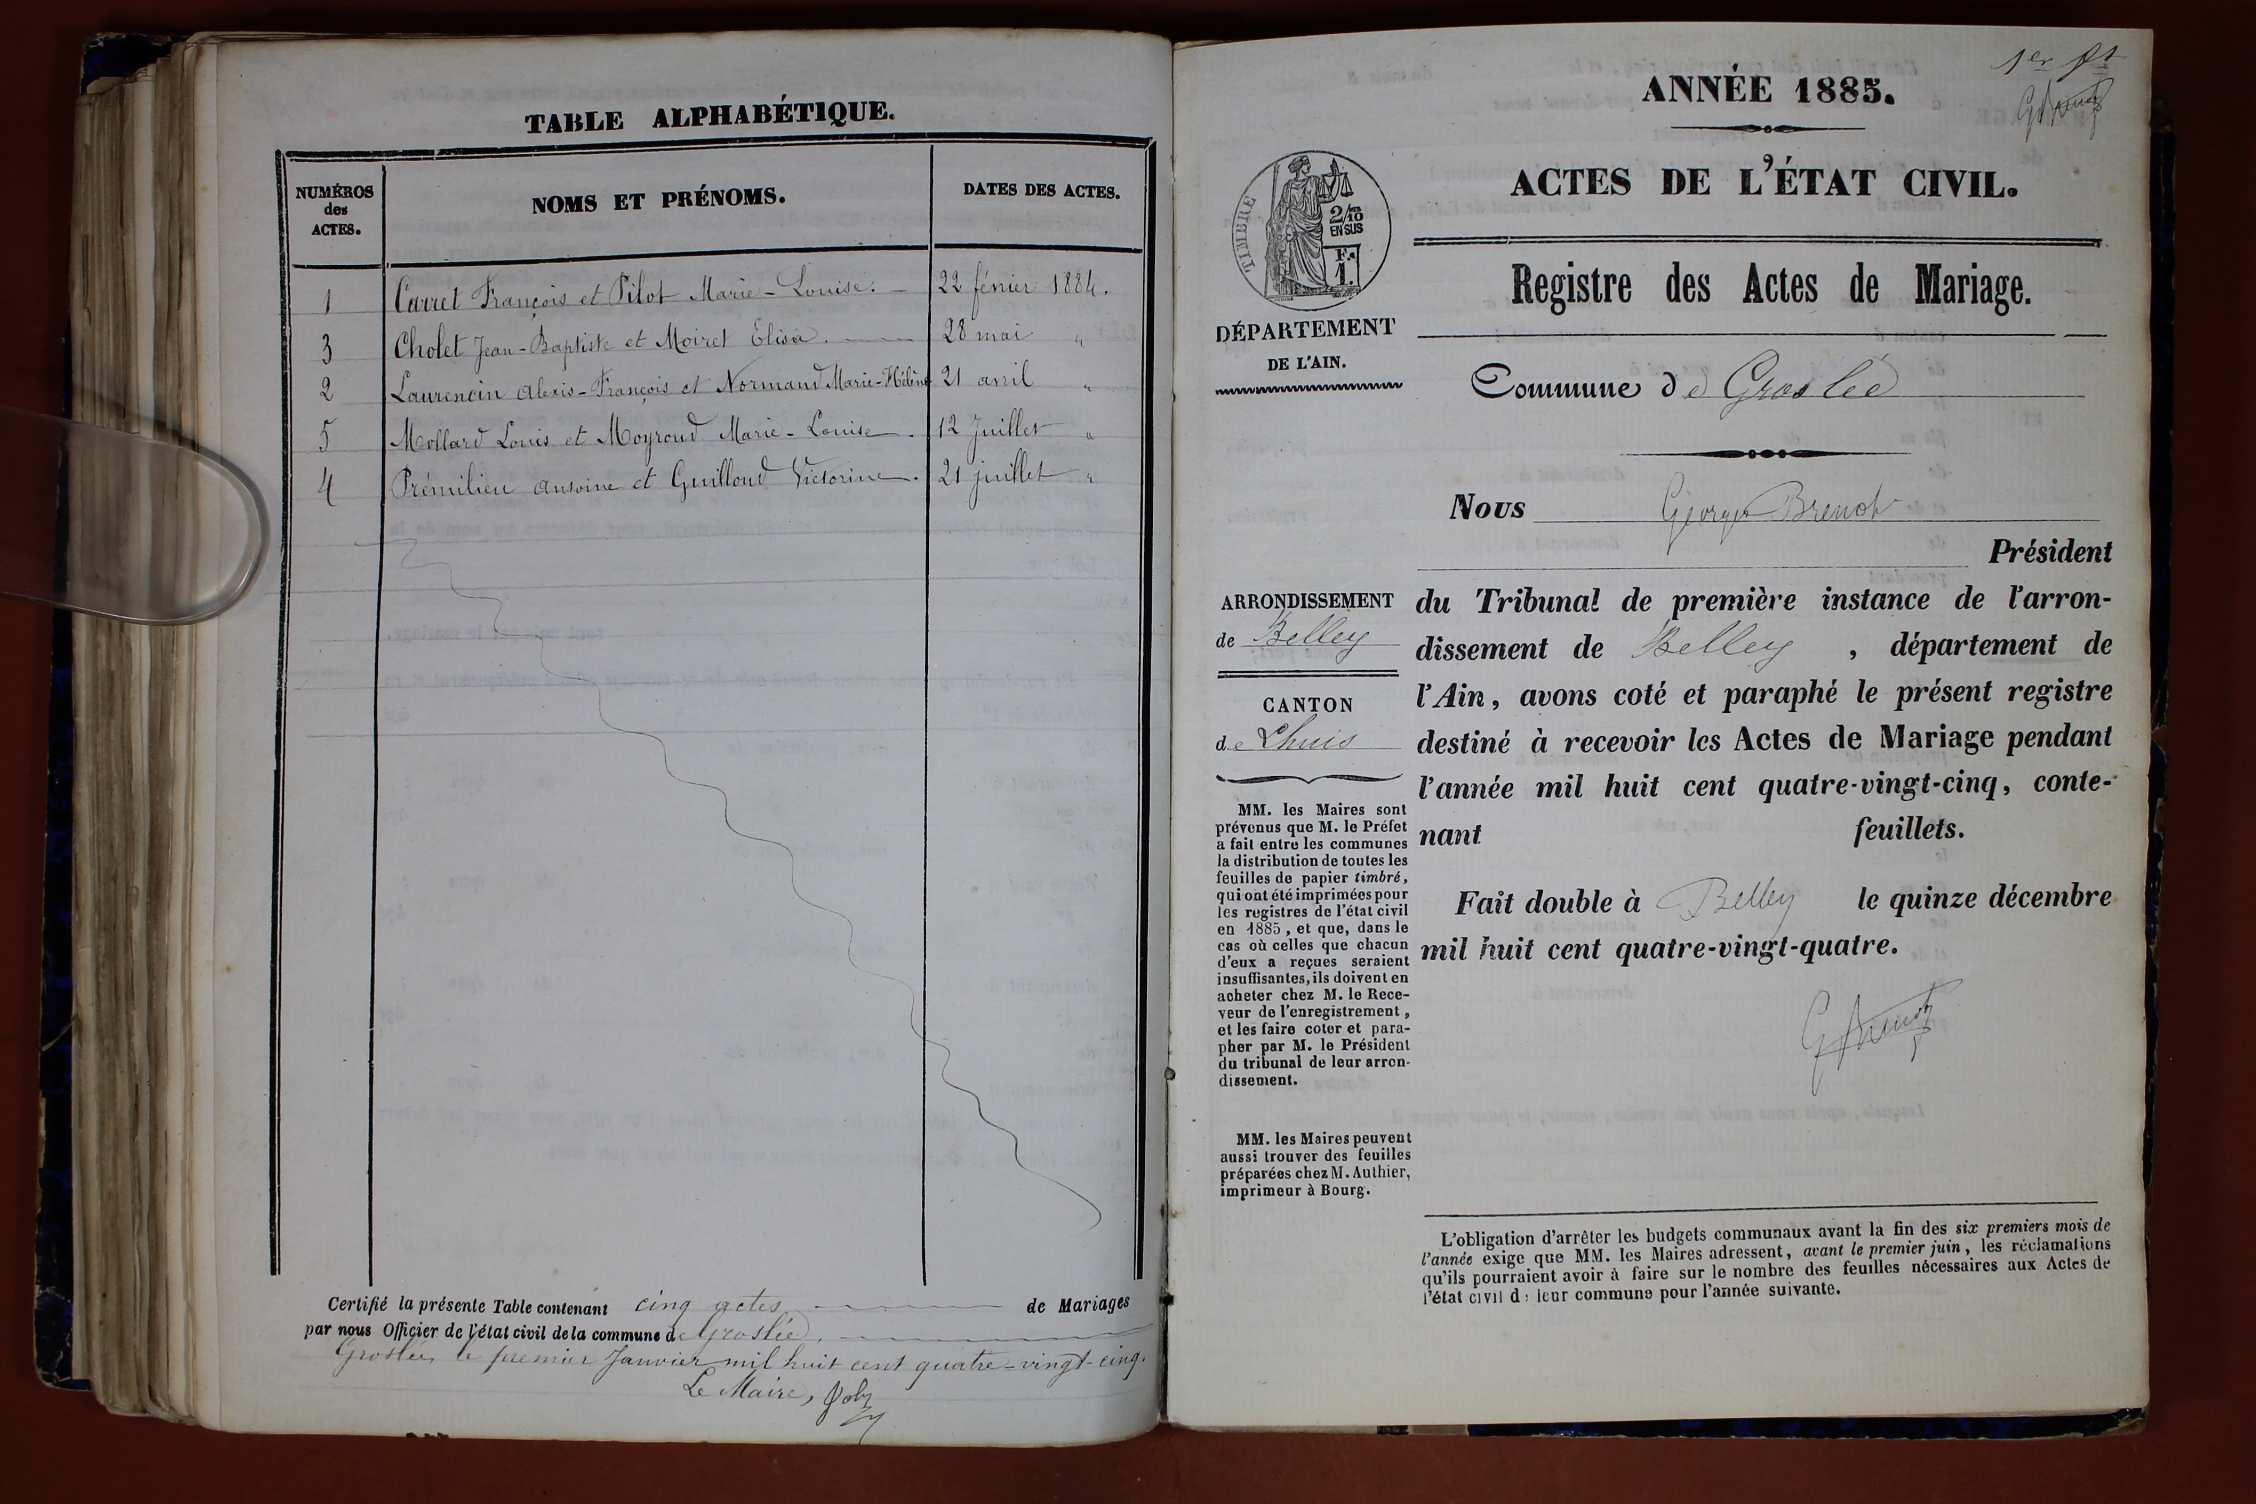 TABLE ALPHABÉTIQUE.
NUMÉROS
des
ACTES.
NOMS ET PRÉNOMS.
DATES DES ACTES.
1 Carret François et Pilot Marie-Louise. 22 février 1884.
3 Cholet Jean-Baptiste et Moiret Elisa. 28 mai "
2 Laurencin Alexis-François et Normand Marie-Hélène 21 avril "
5 Mollard Louis et Moyroud Marie-Louise. 12 Juillet "
4 Prémilieu Antoine et Guilloud Victorine. 21 juillet "
Certifié la présente Table contenant cinq actes de Mariages
par nous Officier de l'état civil de la commune de Groslée.
Groslée, le premier Janvier mil huit cent quatre-vingt-cinq.
Le Maire,
1er
ANNÉE 1885.
ACTES DE L'ÉTAT CIVIL.
TIMBRE
2/10
EN SUS
F.
1.
DÉPARTEMENT
DE L'AIN.
Registre des Actes de Mariage.
Commune de Groslée
Nous Georges Brenot
Président
ARRONDISSEMENT
de Belley
CANTON
de Lhuis
du Tribunal de première instance de l'arron-
dissement de Belley, département de
l'Ain, avons coté et paraphé le présent registre
destiné à recevoir les Actes de Mariage pendant
l'année mil huit cent quatre-vingt-cinq, conte-
nant feuillets.
Fait double à Belley le quinze décembre
mil huit cent quatre-vingt-quatre.
MM. les Maires sont
prévenus que M. le Préfet
a fait entre les communes
la distribution de toutes les
feuilles de papier timbré,
qui ont été imprimées pour
les registres de l'état civil
en 1885, et que, dans le
cas où celles que chacun
d'eux a reçues seraient
insuffisantes, ils doivent en
acheter chez M. le Rece-
veur de l'enregistrement,
et les faire coter et para-
pher par M. le Président
du tribunal de leur arron-
dissement.
MM. les Maires peuvent
aussi trouver des feuilles
préparées chez M. Authier,
imprimeur à Bourg.
L'obligation d'arrêter les budgets communaux avant la fin des six premiers mois de
l'année exige que MM. les Maires adressent, avant le premier juin, les réclamations
qu'ils pourraient avoir à faire sur le nombre des feuilles nécessaires aux Actes de
l'état civil de leur commune pour l'année suivante.